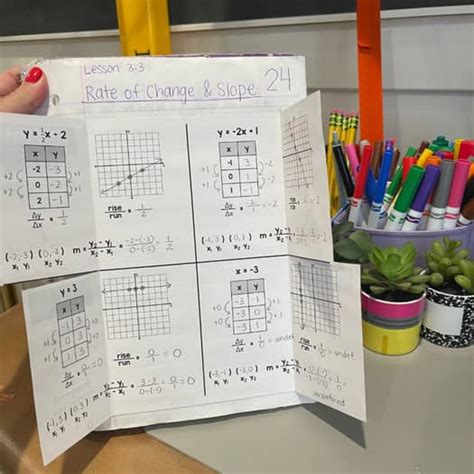 Lesson 3.3
Rate of Change & Slope 24
y = ½x - 2
x y
-2 -3
0 -2
2 -1
+2 +1
+2 +1
Δy/Δx = 1/2
rise/run = 1/2
(-2,-3) (0,-2) m = y₂-y₁/x₂-x₁ = -2-(-3)/0-(-2) = 1/2
x₁ y₁ x₂ y₂
y = -2x + 1
x y
-1 3
0 1
1 -1
+1 -2
+1 -2
Δy/Δx = -2/1 = -2
rise/run
(-1,3) (0,1) m = y₂-y₁/x₂-x₁
x₁ y₁ x₂ y₂
y = 3
x y
-1 3
0 3
1 3
+1 +0
+1 +0
Δy/Δx = 0/1 = 0
rise/run = 0/1 = 0
(-1,3) (0,3) m = y₂-y₁/x₂-x₁ = 3-3/0-(-1) = 0/1 = 0
x₁ y₁ x₂ y₂
x = -3
x y
-3 -1
-3 0
-3 1
+0 +1
+0 +1
Δy/Δx = 1/0 = undef
rise/run = 1/0 = undef
(-3,-1) (-3,0) m = y₂-y₁/x₂-x₁
x₁ y₁ x₂ y₂
undefined